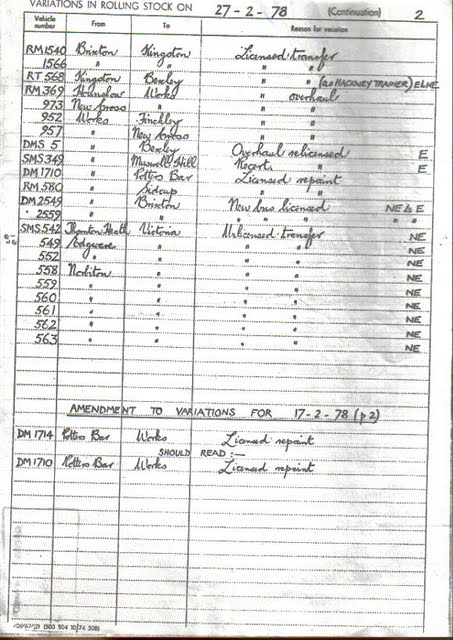 VARIATIONS IN ROLLING STOCK ON 27-2-78 (Continuation) 2
Vehicle number From To Reason for variation
RM1540 Brixton Kingston Licensed transfer
1566 " " " "
RT 568 Kingston Bexley " " (as HACKNEY TRAINER) E
RM 369 Hounslow Works " overhaul
973 New Cross " " "
952 Works Finchley " "
957 " New Cross " "
DMS 5 " Bexley Overhaul relicensed E
SMS 349 " Muswell Hill Recert. " E
DM 1710 " Potters Bar Licensed repaint
RM 580 " Sidcup " "
DM 2549 " Brixton New bus licensed NE & E
" 2559 " " " " " " "
SMS 542 Thornton Heath Victoria Unlicensed transfer NE
549 Edgware " " " NE
552 " " " " NE
558 Norbiton " " " NE
559 " " " " NE
560 " " " " NE
561 " " " " NE
562 " " " " NE
563 " " " " NE
AMENDMENT TO VARIATIONS FOR 17-2-78 (p2)
DM 1714 Potters Bar Works Licensed repaint
SHOULD READ :—
DM 1710 Potters Bar Works Licensed repaint